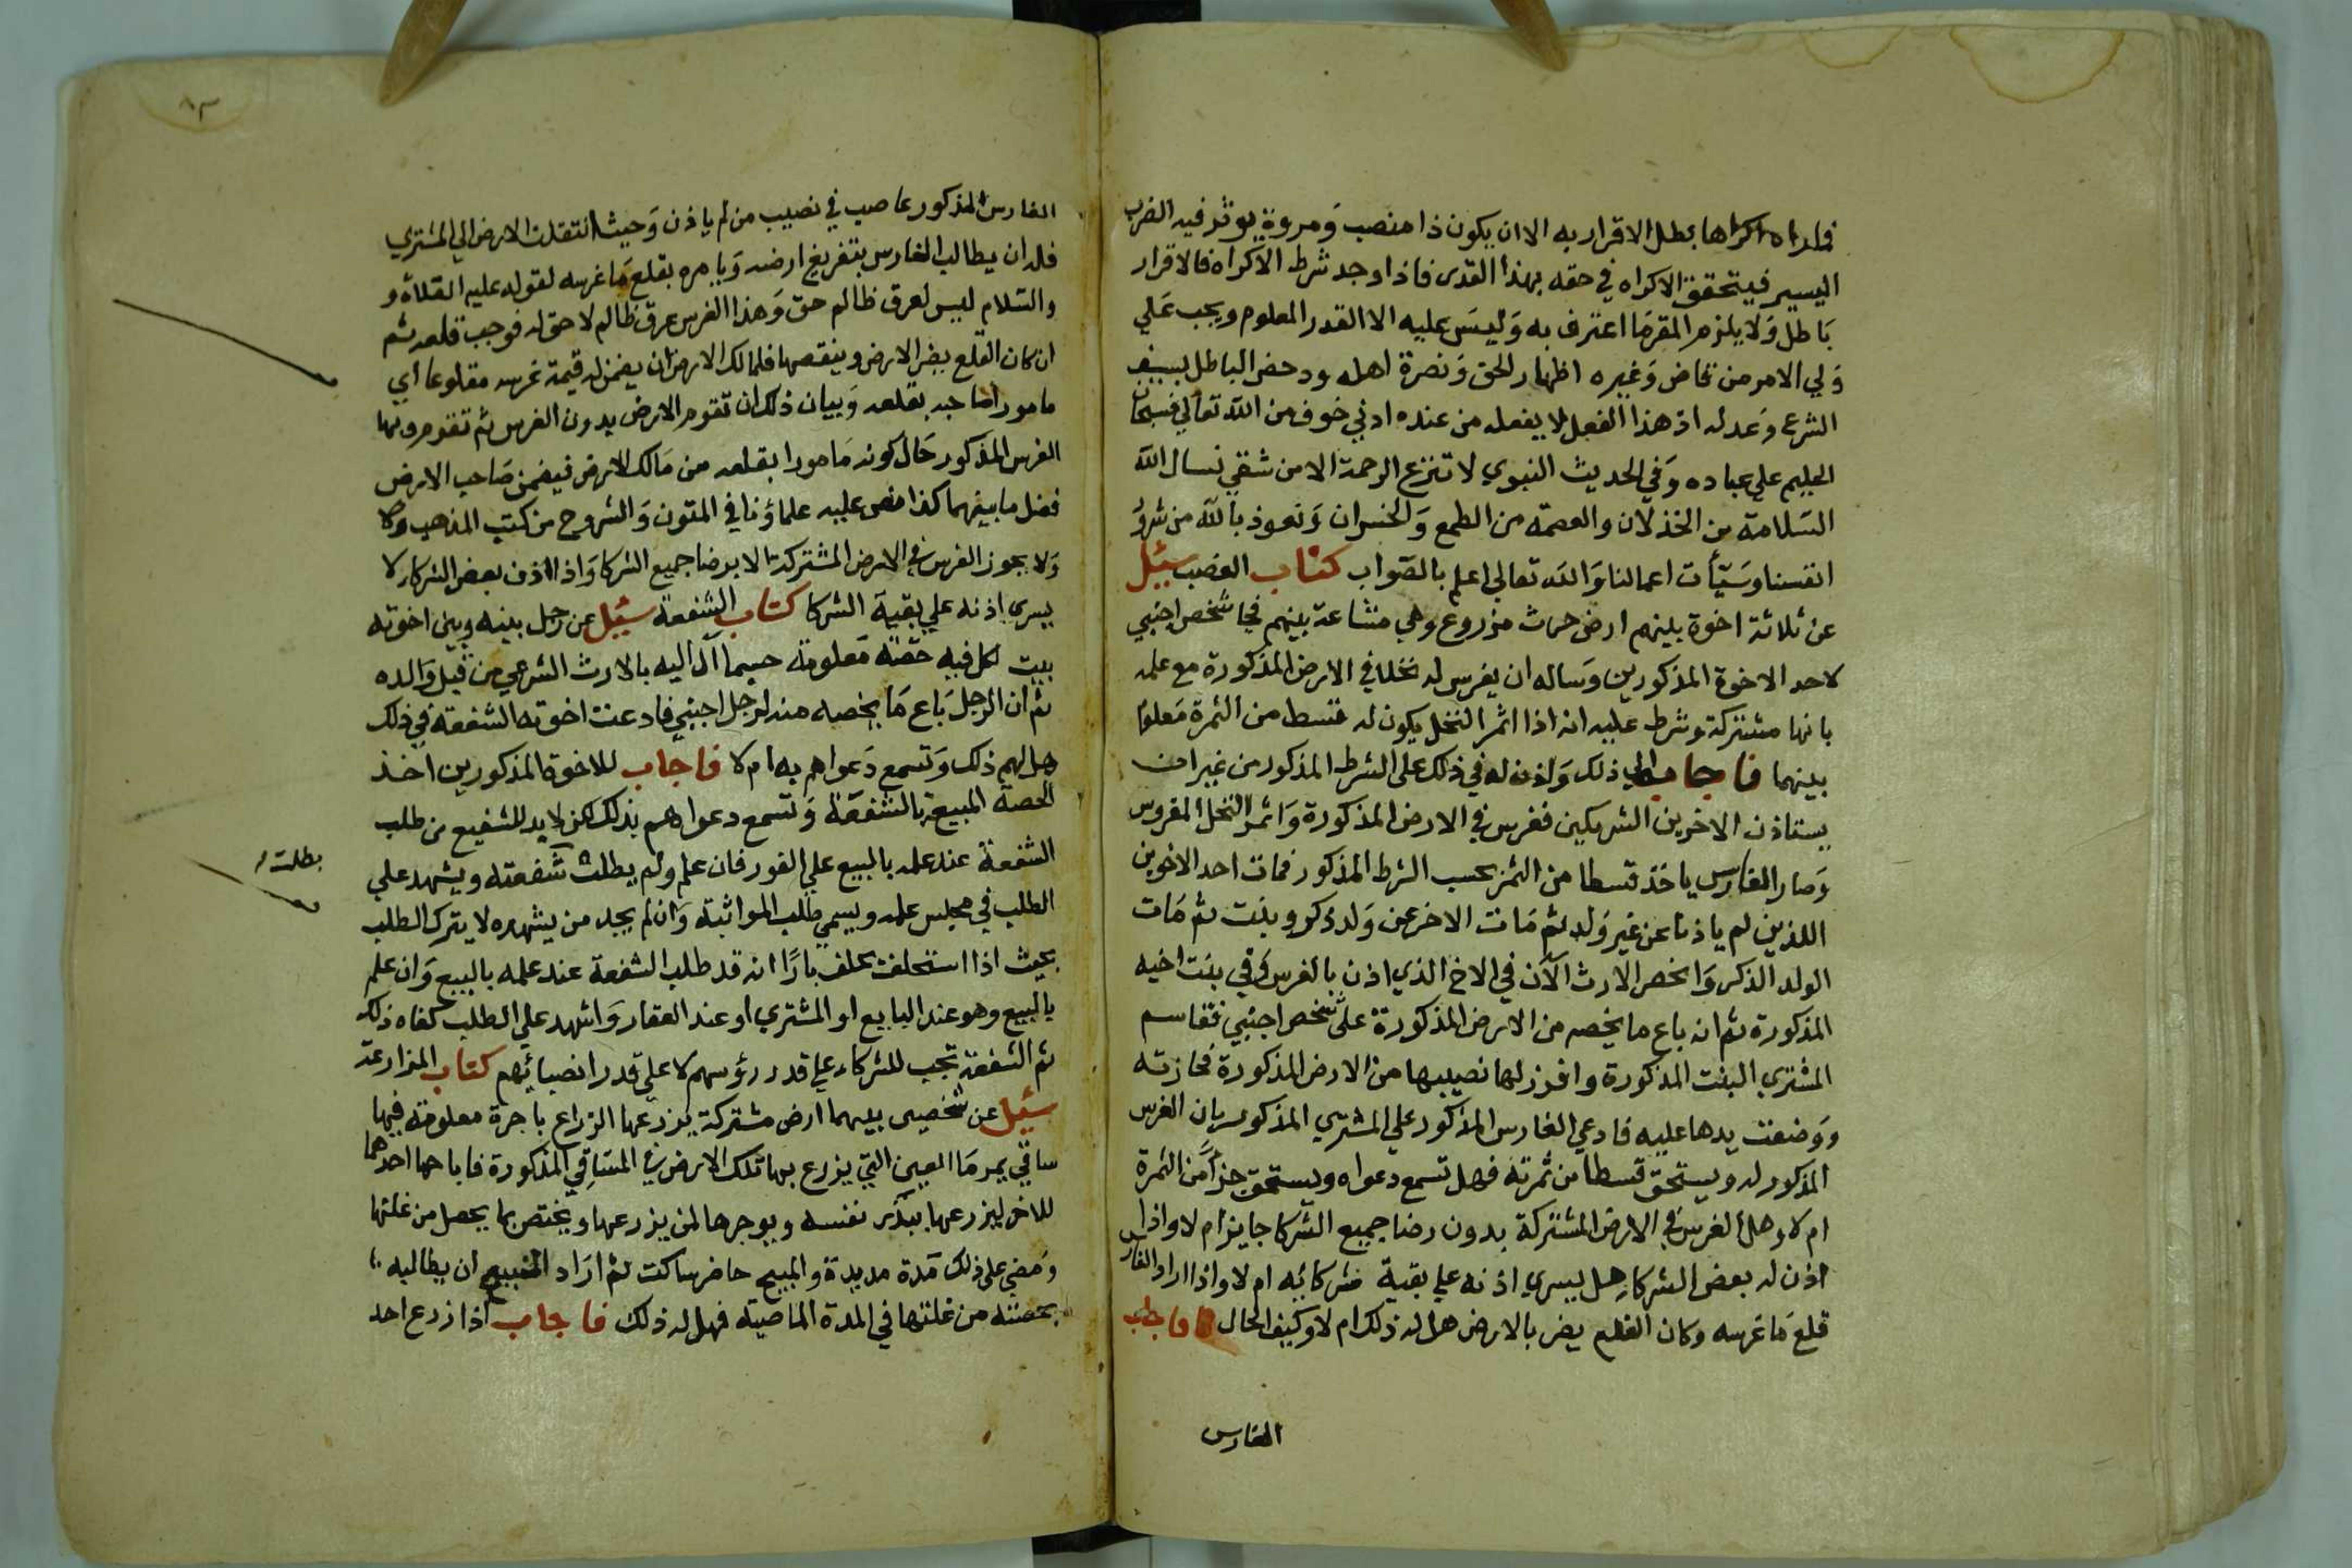 اكراها بطل الاقرار به الا ان يكون ذا منصب ومروة يوثر فيه الضرب
اليسير فيتحقق الاكراه في حقه بهذا القدر فاذا وجد شرط الاكراه فالاقرار
باطل ولا يلزم المقر ما اعترف به وليس عليه الا القدر المعلوم ويجب علي
ولي الامر من قاض وغيره اظهار الحق ونصرة اهله ودحض الباطل بسيف
الشرع وعدله اذ هذا الفعل لا يفعله من عنده ادني خوف من الله تعالي فسبحان
الحليم علي عباده وفي الحديث النبوي لا تنزع الرحمة الا من شقي نسال الله
السلامة من الخذلان والعصمة من الطمع والخسران ونعوذ بالله من شرور
انفسنا وسيأت اعمالنا والله تعالي اعلم بالصواب كتاب الغصب سئيل
عن ثلاثة اخوة بينهم ارض حرث مزروع وهي مشاعة بينهم فجا شخص اجنبي
لاحد الاخوة المذكورين وساله ان يغرس له نخلا في الارض المذكورة مع علمه
بانها مشتركة وشرط عليه انه اذا اثمر النخل يكون له قسط من الثمرة معلوما
بينهما فاجابه الي ذلك واذن له في ذلك علي الشرط المذكور من غير ان
يستاذن الاخرين الشريكين فغرس في الارض المذكورة واثمر النخل المغروس
وصار الغارس ياخذ قسطا من الثمر بحسب الشرط المذكور فمات احد الاخوين
اللذين لم ياذنا عن غير ولد ثم مات الاخر عن ولد ذكر وبنت ثم مات
الولد الذكر وانحصر الارث الآن في الاخ الذي اذن بالغرس وفي بنت اخيه
المذكورة ثم انه باع ما يخصه من الارض المذكورة علي شخص اجنبي فقاسم
المشتري البنت المذكورة وافرز لها نصيبها من الارض المذكورة فحازته
ووضعت يدها عليه فادعي الغارس المذكور علي المشتري المذكور بان الغرس
المذكور له ويستحق قسطا من ثمرته فهل تسمع دعواه ويستحق جزأ من الثمرة
ام لا وهل الغرس في الارض المشتركة بدون رضا جميع الشركا جايز ام لا واذا
اذن له بعض الشركا هل يسري اذنه علي بقية شركائه ام لا واذا اراد الغارس
قلع ما غرسه وكان القلع يضر بالارض هل له ذلك ام لا وكيف الحال فاجاب
الغارس
٨٣
الغارس المذكور غاصب في نصيب من لم ياذن وحيث انتقلت الارض الي المشتري
فله ان يطالب الغارس بتفريغ ارضه ويامره بقلع ما غرسه لقوله عليه الصلاة و
والسلام ليس لعرق ظالم حق وهذا الغرس عرق ظالم لا حق له فوجب قلعه ثم
ان كان القلع يضر الارض وينقصها فلمالك الارض ان يضمن له قيمة غرسه مقلوعا اي
مامورا صاحبه بقلعه وبيان ذلك ان تقوم الارض بدون الغرس ثم تقوم وبها
الغرس المذكور حال كونه مامورا بقلعه من مالك الارض فيضمن صاحب الارض
فضل ما بينهما كذا نص عليه علماؤنا في المتون والشروح من كتب المذهب ولا
ولا يجوز الغرس في الارض المشتركة الا برضا جميع الشركا واذا اذن بعض الشركا لا
يسري اذنه علي بقية الشركا كتاب الشفعة سئيل عن رجل بينه وبين اخوته
بيت لكل فيه حصة معلومة حسبما آل اليه بالارث الشرعي من قبل والده
ثم ان الرجل باع ما يخصه منه لرجل اجنبي فادعت اخوته الشفعة في ذلك
هل لهم ذلك وتسمع دعواهم به ام لا فاجاب للاخوة المذكورين اخذ
الحصة المبيعة بالشفعة وتسمع دعواهم بذلك لكن لا بد للشفيع من طلب
الشفعة عند علمه بالبيع علي الفور فان علم ولم يطلب شفعته ويشهد علي
بطلت
الطلب في مجلس علمه ويسمي طلب المواثبة وان لم يجد من يشهده لا يترك الطلب
بحيث اذا استحلفت يحلف بارا انه قد طلب الشفعة عند علمه بالبيع وان علم
بالبيع وهو عند البايع او المشتري او عند العقار واشهد علي الطلب كفاه ذلك
ثم الشفعة تجب للشركاء علي قدر رؤسهم لا علي قدر انصبائهم كتاب المزارعة
سئيل عن شخصين بينهما ارض مشتركة يزرعها الزراع باجرة معلومة فيها
ساقي يمر ما العين التي يزرع بها تلك الارض في الساقي المذكورة فاباحها احدهما
للاخر ليزرعها ببذر نفسه ويوجرها لمن يزرعها ويختص بما يحصل من غلتها
ومضي علي ذلك مدة مديدة والمبيح حاضر ساكت ثم اراد المبيح ان يطالبه
بحصته من غلتها في المدة الماضية فهل له ذلك فاجاب اذا زرع احد